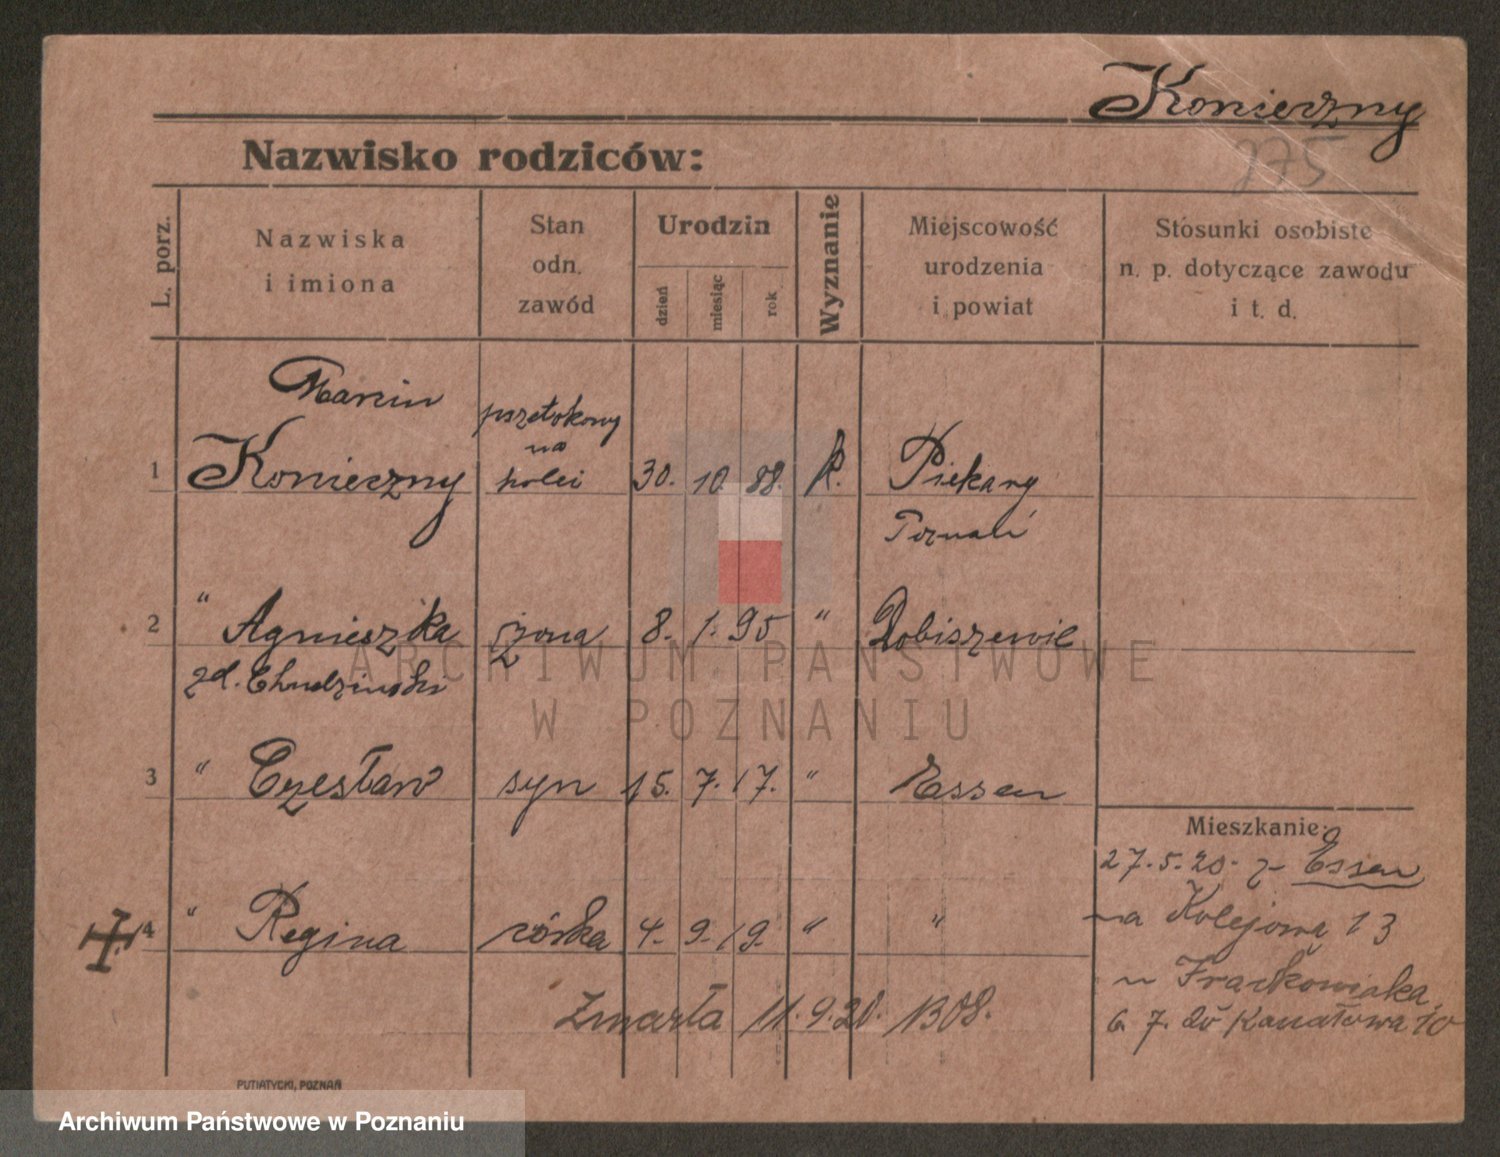 Konieczny
275
Nazwisko rodziców:
L. porz.
Nazwiska
i imiona
Stan
odn.
zawód
Urodzin
dzień
miesiąc
rok
Wyznanie
Miejscowość
urodzenia
i powiat
Stosunki osobiste
n. p. dotyczące zawodu
i t. d.
Marcin
1 Konieczny przetokowy na kolei 30. 10. 88. k. Piekary
Poznań
2 " Agnieszka żona 8. 1. 95 " Dobiszewic
zd. Chudzinski
3 " Czesław syn 15. 7. 17. " Essen
4 " Regina córka 4. 9. 19. " "
Zmarła 11.9.20. 1308.
Mieszkanie:
27.5.20. z Essen
na Kolejową 13
u Frackowiaka
6. 7. 20 Kanałowa 10
PUTIATYCKI, POZNAŃ
ARCHIWUM PAŃSTWOWE
W POZNANIU
Archiwum Państwowe w Poznaniu